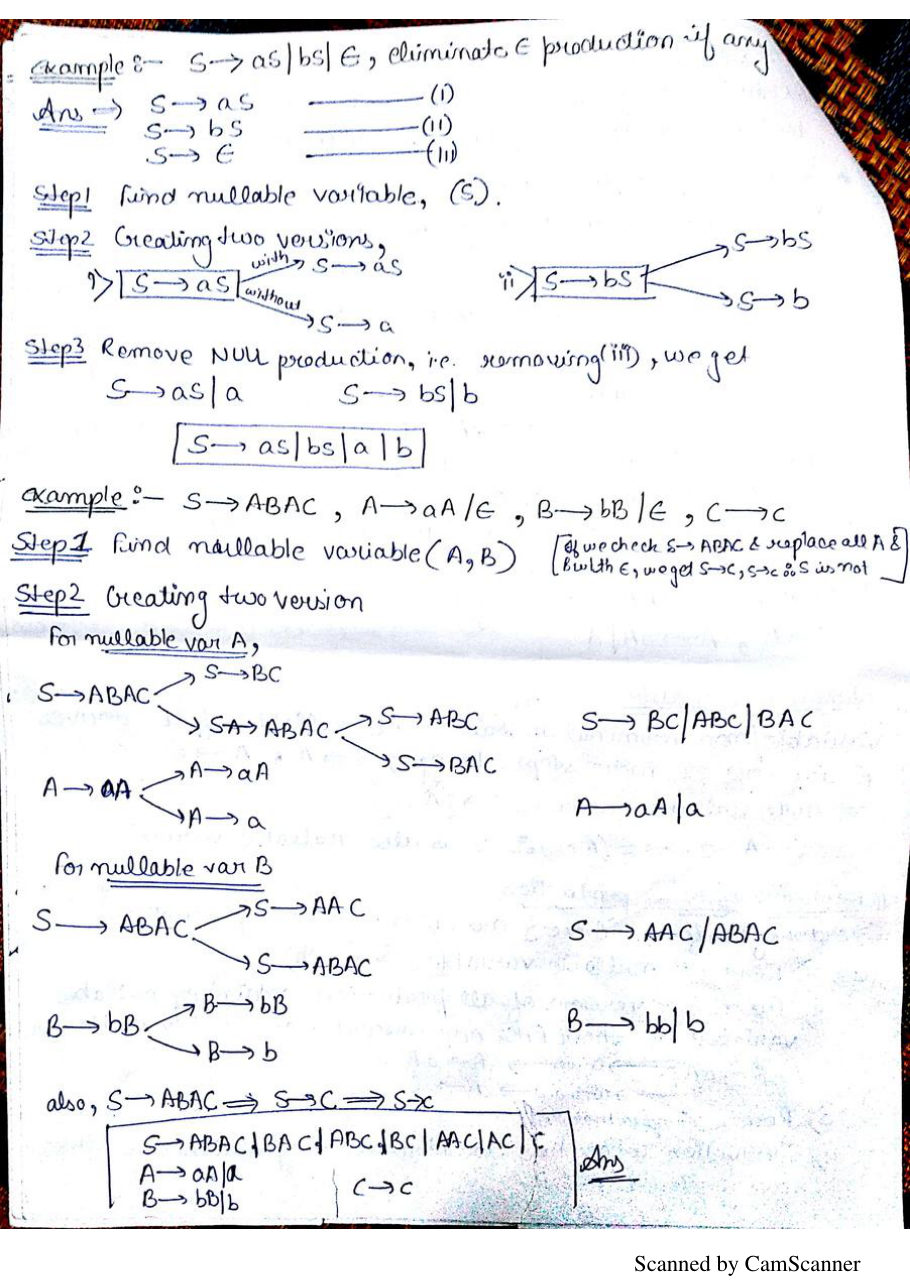 example :- S → aS | bS | ∈ , eliminate ∈ production if any
Ans → S → aS ——— (i)
S → bS ——— (ii)
S → ∈ ——— (iii)
Step1 Find nullable variable, (S).
Step2 Creating two versions,
i> S → aS with S → aS
without S → a
ii> S → bS S → bS
S → b
Step3 Remove NULL production, i.e. removing (iii), we get
S → aS | a S → bS | b
S → aS | bS | a | b
example :- S → ABAC , A → aA / ∈ , B → bB / ∈ , C → c
Step1 Find nullable variable (A, B) [If we check S → ABAC & replace all A &
B with ∈, we get S → C, S → c ∴ S is not]
Step2 Creating two version
For nullable var A,
S → ABAC S → BC
SA → ABAC S → ABC
S → BAC
S → BC | ABC | BAC
A → aA A → aA
A → a
A → aA | a
For nullable var B
S → ABAC S → AAC
S → ABAC
S → AAC / ABAC
B → bB B → bB
B → b
B → bb | b
also, S → ABAC ⟹ S → C ⟹ S → c
S → ABAC | BAC | ABC | BC | AAC | AC | C
A → aA | a
B → bB | b C → c
Ans
Scanned by CamScanner